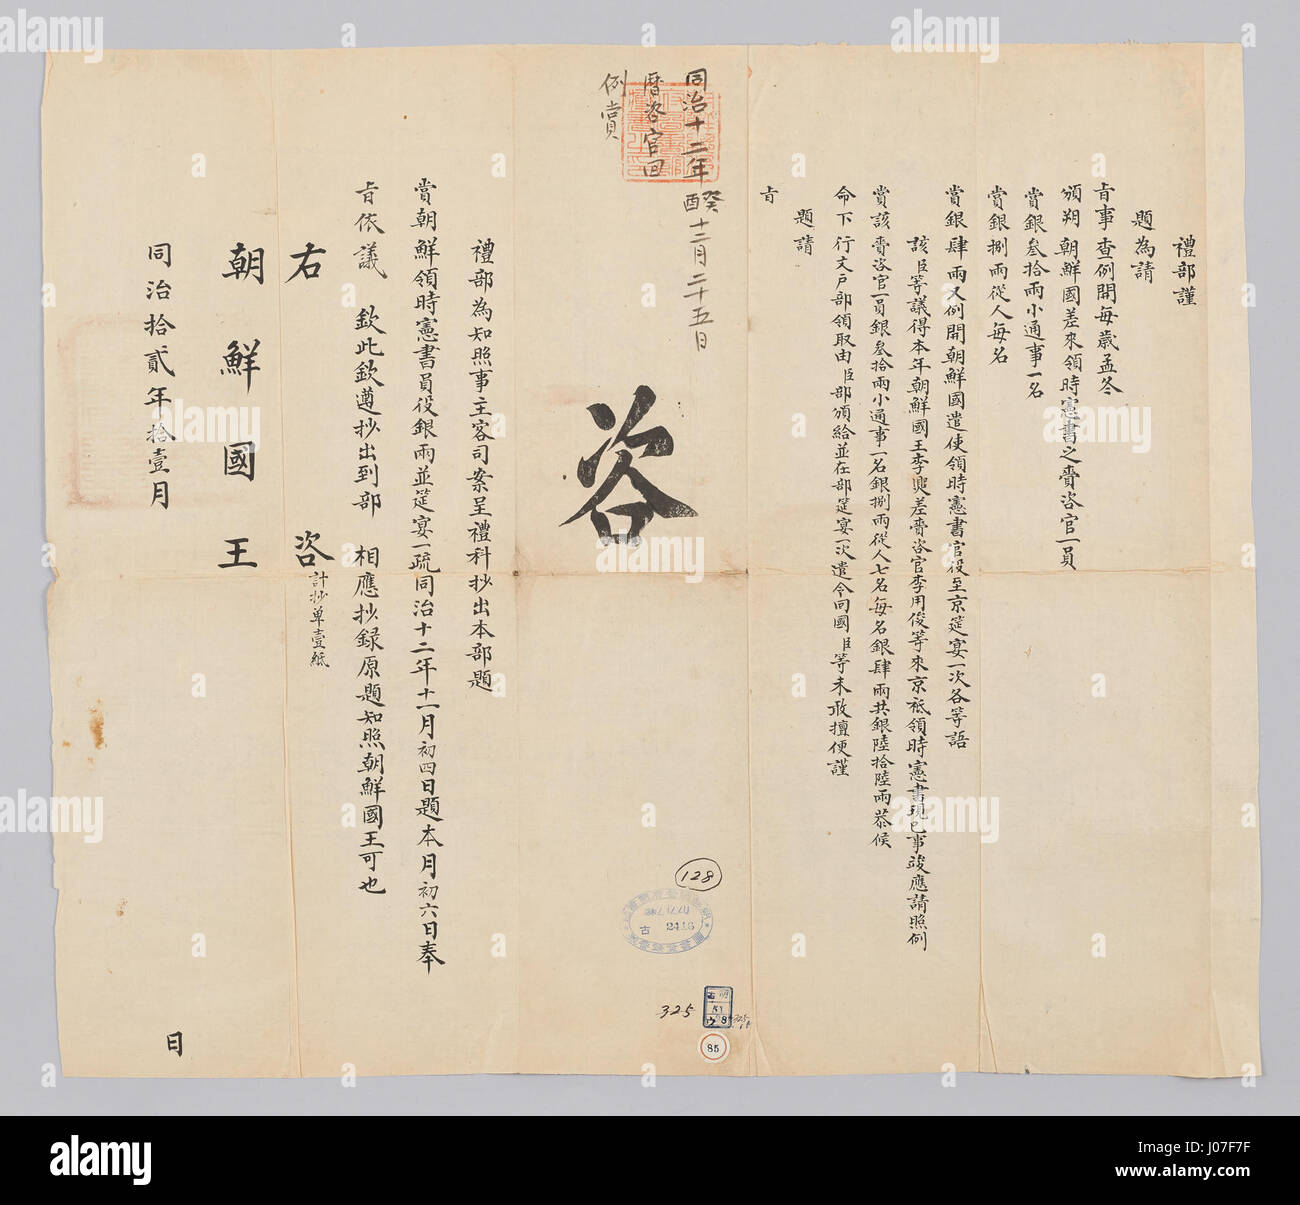 禮部謹
題為請
旨事查例開每歲孟冬
頒朔朝鮮國差來領時憲書之賫咨官一員
賞銀叁拾兩小通事一名
賞銀捌兩從人每名
賞銀肆兩又例開朝鮮國遣使領時憲書官役至京筵宴一次各等語
該臣等議得本年朝鮮國王李㷩差賫咨官李用俊等來京祗領時憲書現已事竣應請照例
賞該賫咨官一員銀叁拾兩小通事一名銀捌兩從人七名每名銀肆兩共銀陸拾陸兩恭候
命下行文戶部領取由臣部頒給並在部筵宴一次遣令回國臣等未敢擅便謹
題請
旨
同治十二年癸酉十二月二十五日
曆咨官回
例賞
咨
禮部為知照事主客司案呈禮科抄出本部題
賞朝鮮領時憲書員役銀兩並筵宴一疏同治十二年十一月初四日題本月初六日奉
旨依議欽此欽遵抄出到部相應抄錄原題知照朝鮮國王可也
右咨計抄單壹紙
朝鮮國王
同治拾貳年拾壹月日
128
古 2416
325
85
alamy
J07F7F
www.alamy.com